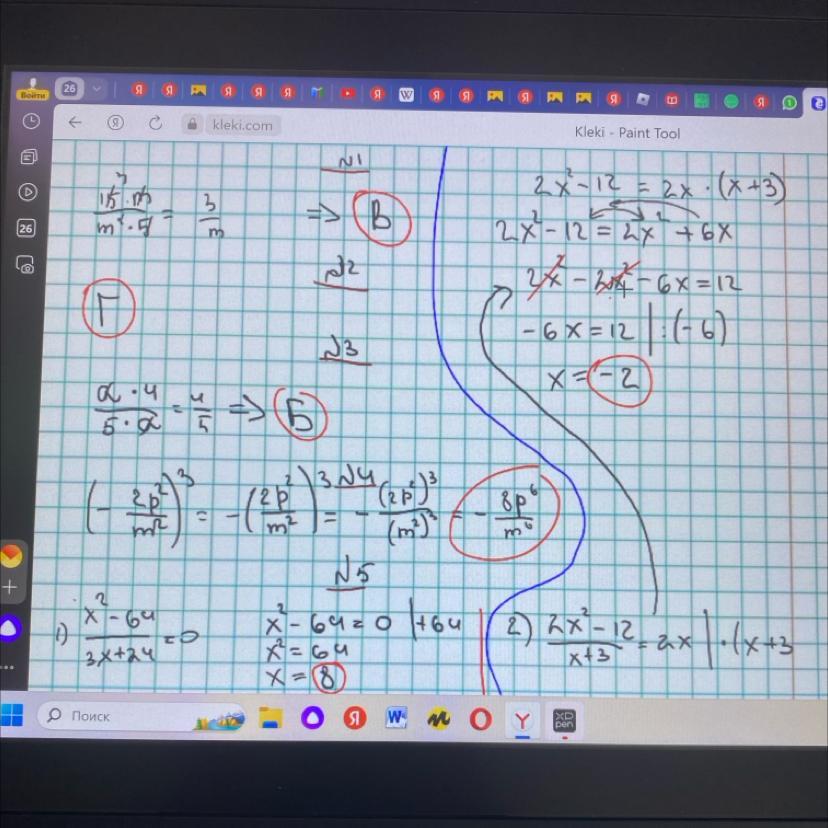 Войти
26
kleki.com
Kleki - Paint Tool
26
N1
15·m / m²·5 = 3/m => В
N2
Г
N3
a·4 / 5·a = 4/5 => Б
N4
(-2p²/m²)³ = -(2p²/m²)³ = -(2p²)³/(m²)³ = -8p⁶/m⁶
N5
1) x²-64 / 3x+24 = 0
x²-64=0 |+64
x²=64
x=8
2) 2x²-12 / x+3 = 2x | ·(x+3
2x²-12 = 2x·(x+3)
2x²-12 = 2x²+6x
2x²-2x²-6x=12
-6x=12 | :(-6)
x=-2
Поиск
XD
pen